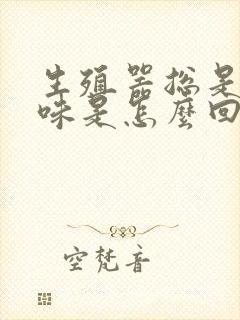 生殖器总是
味是怎麼回
空梵音